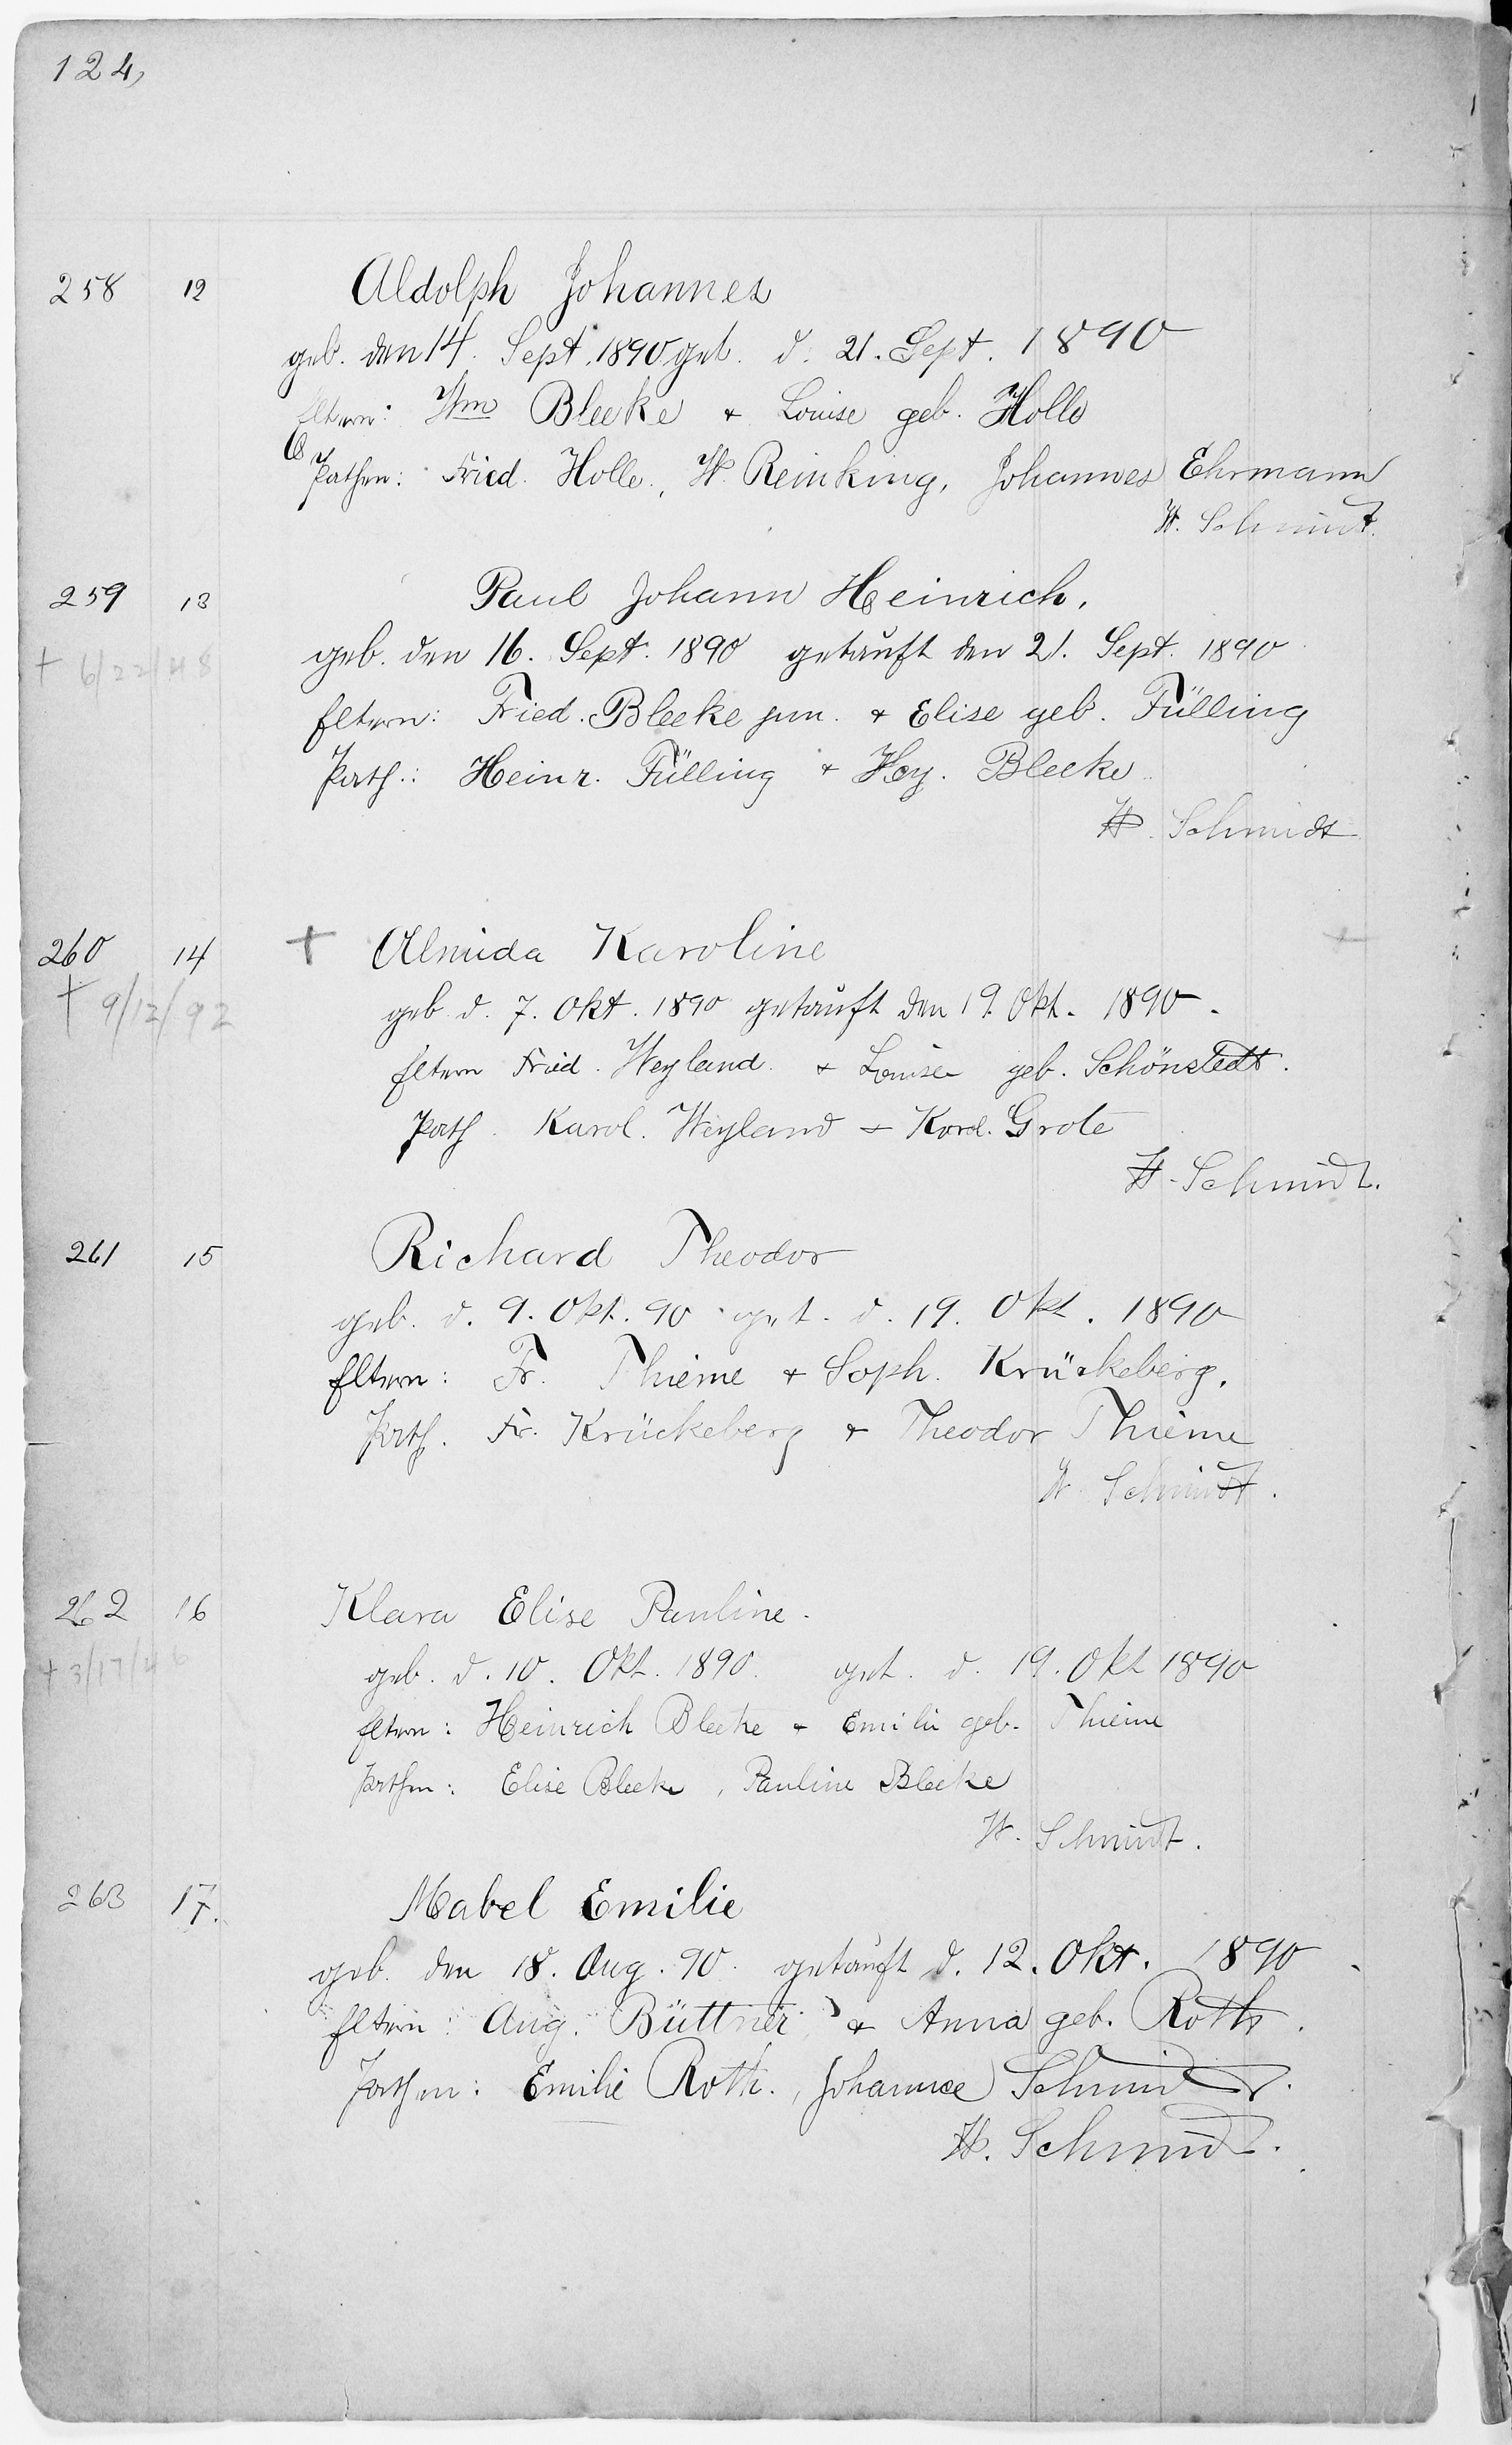 124,
258 12 Aldolph Johannes
geb. den 14. Sept. 1890 get. d. 21. Sept. 1890
Eltern: Wm Bleeke & Louise geb. Holle
Pathen: Fried. Holle, W. Reinking, Johannes Ehrmann
W. Schmidt.
259 13 Paul Johann Heinrich,
† 6/22/48
geb. den 16. Sept. 1890 getauft den 21. Sept. 1890
Eltern: Fried. Bleeke jun. & Elise geb. Fülling
Path.: Heinr. Fülling & Hy. Bleeke
W. Schmidt
260 14 † Almida Karoline
† 9/12/92
geb. d. 7. Okt. 1890 getauft den 19. Okt. 1890.
Eltern Fried. Weyland & Louise geb. Schönstedt.
Path. Karol. Weyland & Kord. Grote
W. Schmidt.
261 15 Richard Theodor
geb. d. 9. Okt. 90 get. d. 19. Okt. 1890
Eltern: Fr. Thieme & Soph. Krückeberg.
Path. Fr. Krückeberg & Theodor Thieme
W. Schmidt.
262 16 Klara Elise Pauline.
† 3/17/46
geb. d. 10. Okt. 1890. get. d. 19. Okt 1890
Eltern: Heinrich Bleeke & Emilie geb. Thieme
Pathen: Elise Bleeke, Pauline Bleeke
W. Schmidt.
263 17. Mabel Emilie
geb. den 18. Aug. 90. getauft d. 12. Okt. 1890.
Eltern: Aug. Büttner & Anna geb. Roth.
Pathen: Emilie Roth., Schmidt.
W. Schmidt.